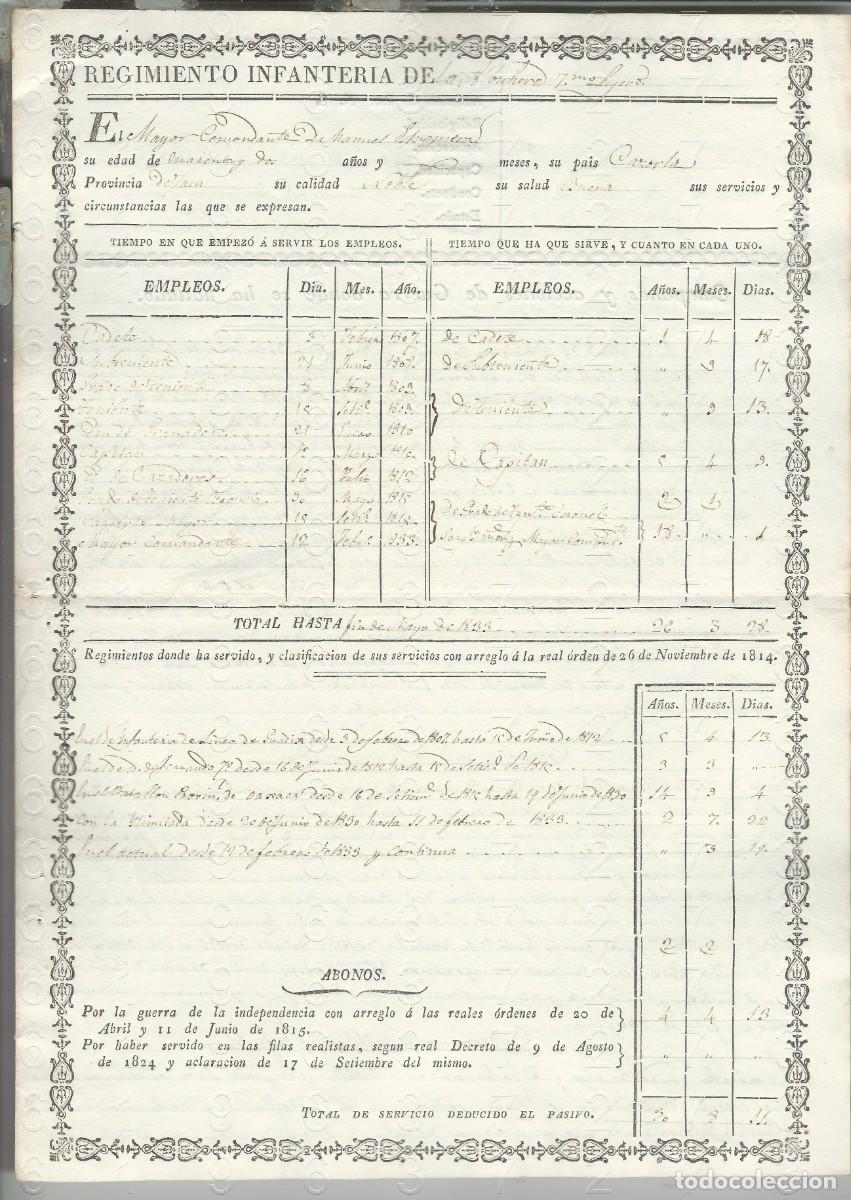 REGIMIENTO INFANTERIA DE la 7.mo Lijero.
El Mayor Comandante Dn Manuel
su edad de cuarenta y dos años y meses, su pais Cazorla
Provincia De Jaen su calidad Noble su salud Buena sus servicios y
circunstancias las que se expresan.
TIEMPO EN QUE EMPEZÓ Á SERVIR LOS EMPLEOS. TIEMPO QUE HA QUE SIRVE, Y CUANTO EN CADA UNO.
EMPLEOS. Dia. Mes. Año. EMPLEOS. Años. Meses. Dias.
Cadete 3 Febro 1807. de Cadete 1 4 18
Subteniente 21 Junio 1808. de Subteniente " 9 17.
8 Abril 1809.
Teniente 18 Seti.e 1809. de Teniente " 9 13.
21 Enero 1810
Capitan Marzo 1810. de Capitan 5 4 9.
Yd. de Cazadores 16 Julio 1812
Grado de Teniente Coronel 30 Mayo 1815 2 1
Sargento Mayor 15 Seti.e de Grado de Tente Coronel
Mayor Comandante 12 Febo. 1833. Mayor Comand.te 18 " 1
TOTAL HASTA fin de Mayo de 1833 26 3 28
Regimientos donde ha servido, y clasificacion de sus servicios con arreglo á la real órden de 26 de Noviembre de 1814.
Años. Meses. Dias.
En el de Infanteria de Linea de Guadix desde 3 de febrero de 1807. hasta 15 de Junio de 1812 5 4 13
En el de Fernando 7º desde 16 de Junio de 1812 hasta 15 de Setie. de 3 3 "
En el Batallon Provin.l de Oaxaca desde 16 de Setiem.e de hasta 19 de Junio de 1830 14 9 4
Con Lca. Ylimitada desde 20 de Junio de 1830 hasta 11 de febrero de 1833 2 7. 22
En el actual desde 12 de febrero de 1833 y continua " 3 19.
2 2
ABONOS.
Por la guerra de la independencia con arreglo á las reales órdenes de 20 de
Abril y 11 de Junio de 1815. 4 4 13
Por haber servido en las filas realistas, segun real Decreto de 9 de Agosto
de 1824 y aclaracion de 17 de Setiembre del mismo. " " "
TOTAL DE SERVICIO DEDUCIDO EL PASIVO. 30 8 11.
todocoleccion